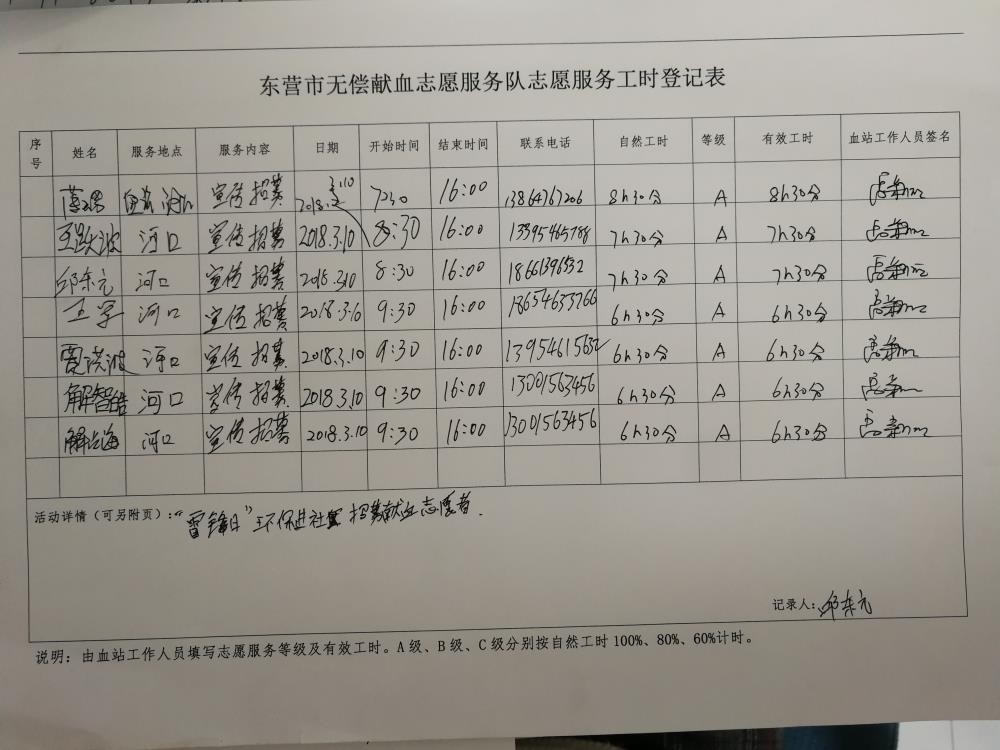 东营市无偿献血志愿服务队志愿服务工时登记表
序号 姓名 服务地点 服务内容 日期 开始时间 结束时间 联系电话 自然工时 等级 有效工时 血站工作人员签名
宣传招募 2018.3.10 16:00 13864767206 8h30分 A 8h30分
王跃波 河口 宣传招募 2018.3.10 8:30 16:00 13395465788 7h30分 A 7h30分
邱东元 河口 宣传招募 2018.3.10 8:30 16:00 18661396532 7h30分 A 7h30分
王宇 河口 宣传招募 9:30 16:00 18654633766 6h30分 A 6h30分
贾洪波 河口 宣传招募 2018.3.10 9:30 16:00 13954615632 6h30分 A 6h30分
解智皓 河口 宣传招募 2018.3.10 9:30 16:00 13001563456 6h30分 A 6h30分
河口 宣传招募 2018.3.10 9:30 16:00 13001563456 6h30分 A 6h30分
活动详情（可另附页）：“雷锋日”环保进社区 招募献血志愿者.
记录人：邱东元
说明：由血站工作人员填写志愿服务等级及有效工时。A 级、B 级、C 级分别按自然工时 100%、80%、60%计时。